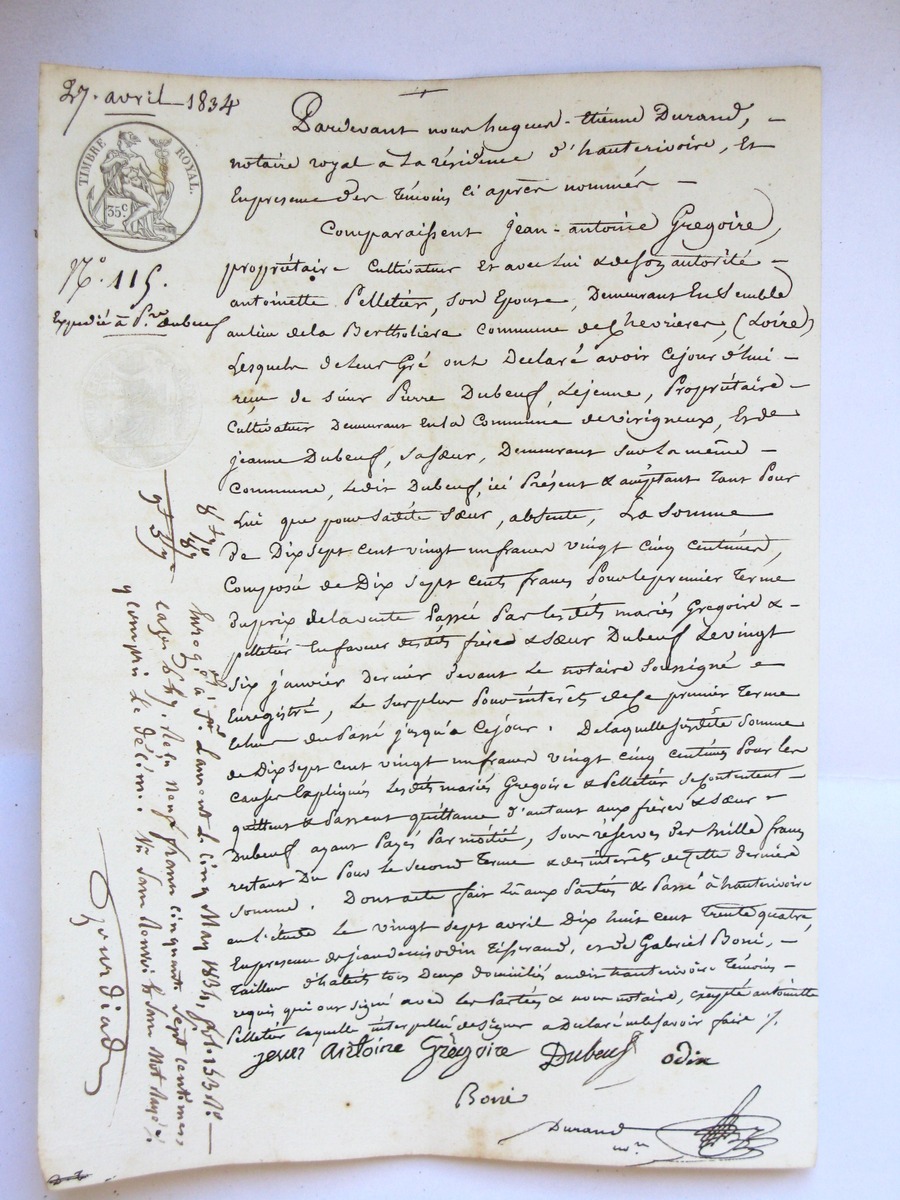 27. avril 1834
TIMBRE ROYAL.
35c
N.o 115.
Expedié à P.re Dubeuf
Pardevant nous hugues-Etienne Durand,
notaire royal à la résidence d'hauterivoire, Et
En presence des Témoins ci après nommés
Comparaissent jean-antoine Gregoire,
propriétaire Cultivateur Et avec lui & de son autorité
antoinette Pelletier, son Epouse, Demeurant Ensemble
au lieu de la Bertholiere Commune de Chevrieres, (Loire)
Lesquels de leur Gré ont Declaré avoir cejour d'hui
reçu de sieur Pierre Dubeuf, Lejeune, Propriétaire
Cultivateur Demeurant En la Commune de virigneux, Et de
jeanne Dubeuf, sa sœur, Demeurant sur la même
Commune, Ledit Dubeuf, ici Présent & acceptant tant Pour
Lui que pour sadite sœur, absente, La somme
De Dix sept cent vingt un francs vingt cinq centimes,
Composé de Dix sept cents francs Pour le premier Terme
du prix de la vente Passée Par les dits mariés Gregoire &
pelletier En faveur desdits frère & sœur Dubeuf Le vingt
six janvier dernier devant Le notaire soussigné
Enregistré, Le surplus Pour intérêts de ce premier Terme
Echus du Passé jusqu'à cejour. De laquelle susdite somme
de Dix sept cent vingt un francs vingt cinq centimes Pour les
causes Expliqués Lesdits mariés Gregoire & Pelletier se contentent
quittent & Passent quittance d'autant aux frère & sœur
Dubeuf ayant Payés Par moitié, sous réserves des mille francs
restant Du Pour Le second Terme & des intérêts de cette dernière
somme. Dont acte fait Lu aux Parties & Passé à hauterivoire
en l'étude Le vingt sept avril Dix huit cent trente quatre,
En presence de jean denis odin Tisserand, et de Gabriel Boné,
Tailleur d'habits tous Deux domiciliés audit hauterivoire Témoins
requis qui ont signé avec les Parties & nous notaire, excepté antoinette
Pelletier laquelle interpellée de signer a Declaré ne le savoir faire
jean Antoine Grégoire Dubeuf odin
Boné
Durand
n.re
Enregistré à St. Laurent le cinq May 1834, f.o 153 R.o
cases 6 & 7. Reçu neuf francs cinquante sept centimes
y compris le décime. Ni sans Renvoi & sans Mot Rayé